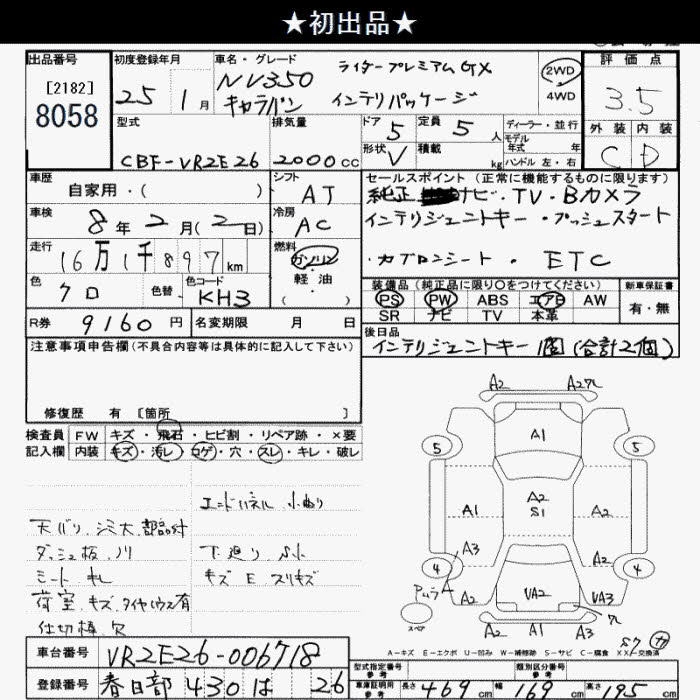 ★初出品★
出品番号
[2182]
8058
初度登録年月
25年 1月
車名・グレード
NV350 ライダープレミアムGX
キャラバン インテリパッケージ
2WD
4WD
評価点
3.5
外装 内装
C D
型式
CBF-VR2E26
排気量
2000cc
ドア 5
定員 5人
形状 V
積載 kg
ディーラー・並行
モデル年式 年
ハンドル 左・右
車歴
自家用・( )
シフト
AT
セールスポイント(正常に機能するものに限ります)
純正 ナビ・TV・Bカメラ
インテリジェントキー・プッシュスタート
・カプロンシート・ETC
車検
8年 2月(2日)
冷房
AC
走行
16万1千897km
燃料
ガソリン
軽油
( )
色
クロ
色替
色コード
KH3
装備品(純正品に限り○をつけてください)
PS PW ABS エアB AW
SR ナビ TV 本革
新車保証書
有・無
R券 9160円
名変期限 月 日
後日品
インテリジェントキー1個(合計2個)
注意事項申告欄(不具合内容等は具体的に記入して下さい)
修復歴 有 [箇所 ]
検査員記入欄
FW キズ・飛石・ヒビ割・リペア跡・×要
内装 キズ・汚レ・コゲ・穴・スレ・キレ・破レ
エンドパネル 小ぬり
天バリ、シミ大、部品付
ダッシュ板、ノリ
下廻り、S小
シート
キズ E スリキズ
荷室、キズ、タイヤハウス有
仕切棒、穴
A2 A2
A1
5 5
A1 A2 S1 A2
A3 A2
4 4
A2 UA2 UA3
スペア
A2 A1 A3
A-キズ E-エクボ U-凹み W-補修跡 S-サビ C-腐食 XX-交換済
車台番号 VR2E26-006718
登録番号 春日部 430 は 26
型式指定番号
参考
類別区分番号
参考
車庫証明用
参考
長さ 469cm 幅 169cm 高さ 195cm